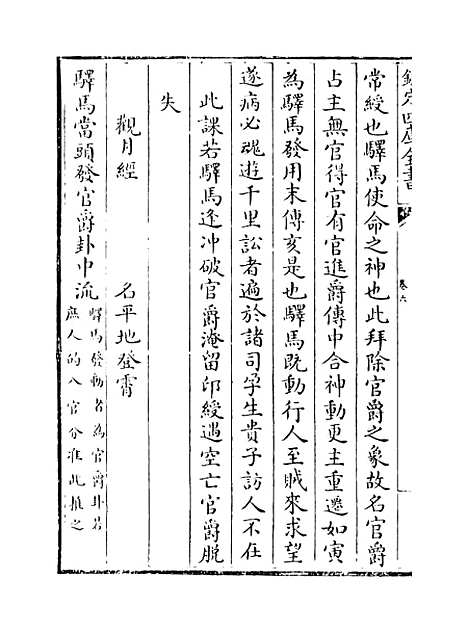 欽定四庫全書
卷六
常綬也驛馬使命之神也此拜除官爵之象故名官爵
占主無官得官有官進爵傳中合神動更主重遷如寅
為驛馬發用末傳亥是也驛馬既動行人至賊來求望
遂病必魂遊千里訟者遍於諸司孕生貴子訪人不在
此課若驛馬逢冲破官爵淹留印綬遇空亡官爵脫
失
觀月經　名平地登霄
驛馬當頭發官爵卦中流驛馬發動者為官爵卦若
庶人的入官分准此推之